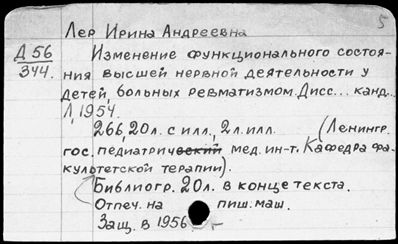 5
Лер Ирина Андреевна
Д 56
344.
Изменение функционального состоя-
ния высшей нервной деятельности у
детей, больных ревматизмом. Дисс... канд..
Л, 1954.
266, 20 л. с илл., 2 л. илл. (Ленингр.
гос. педиатрический мед. ин-т. Кафедра фа-
культетской терапии).
Библиогр. 20 л. в конце текста.
Отпеч. на пиш. маш.
Защ. в 1956